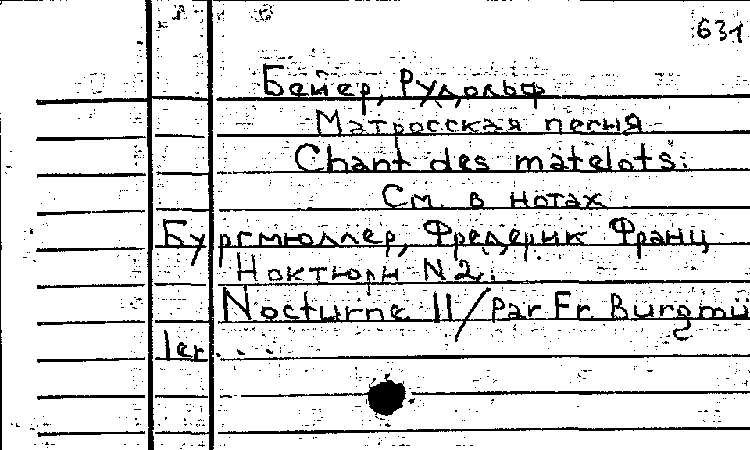 631
Бейер, Рудольф
Матросская песня
Chant des matelots.
См. в нотах
Бургмюллер, Фредерик Франц
Ноктюрн N 2.
Nocturne II/Par Fr. Burgmü
ler...